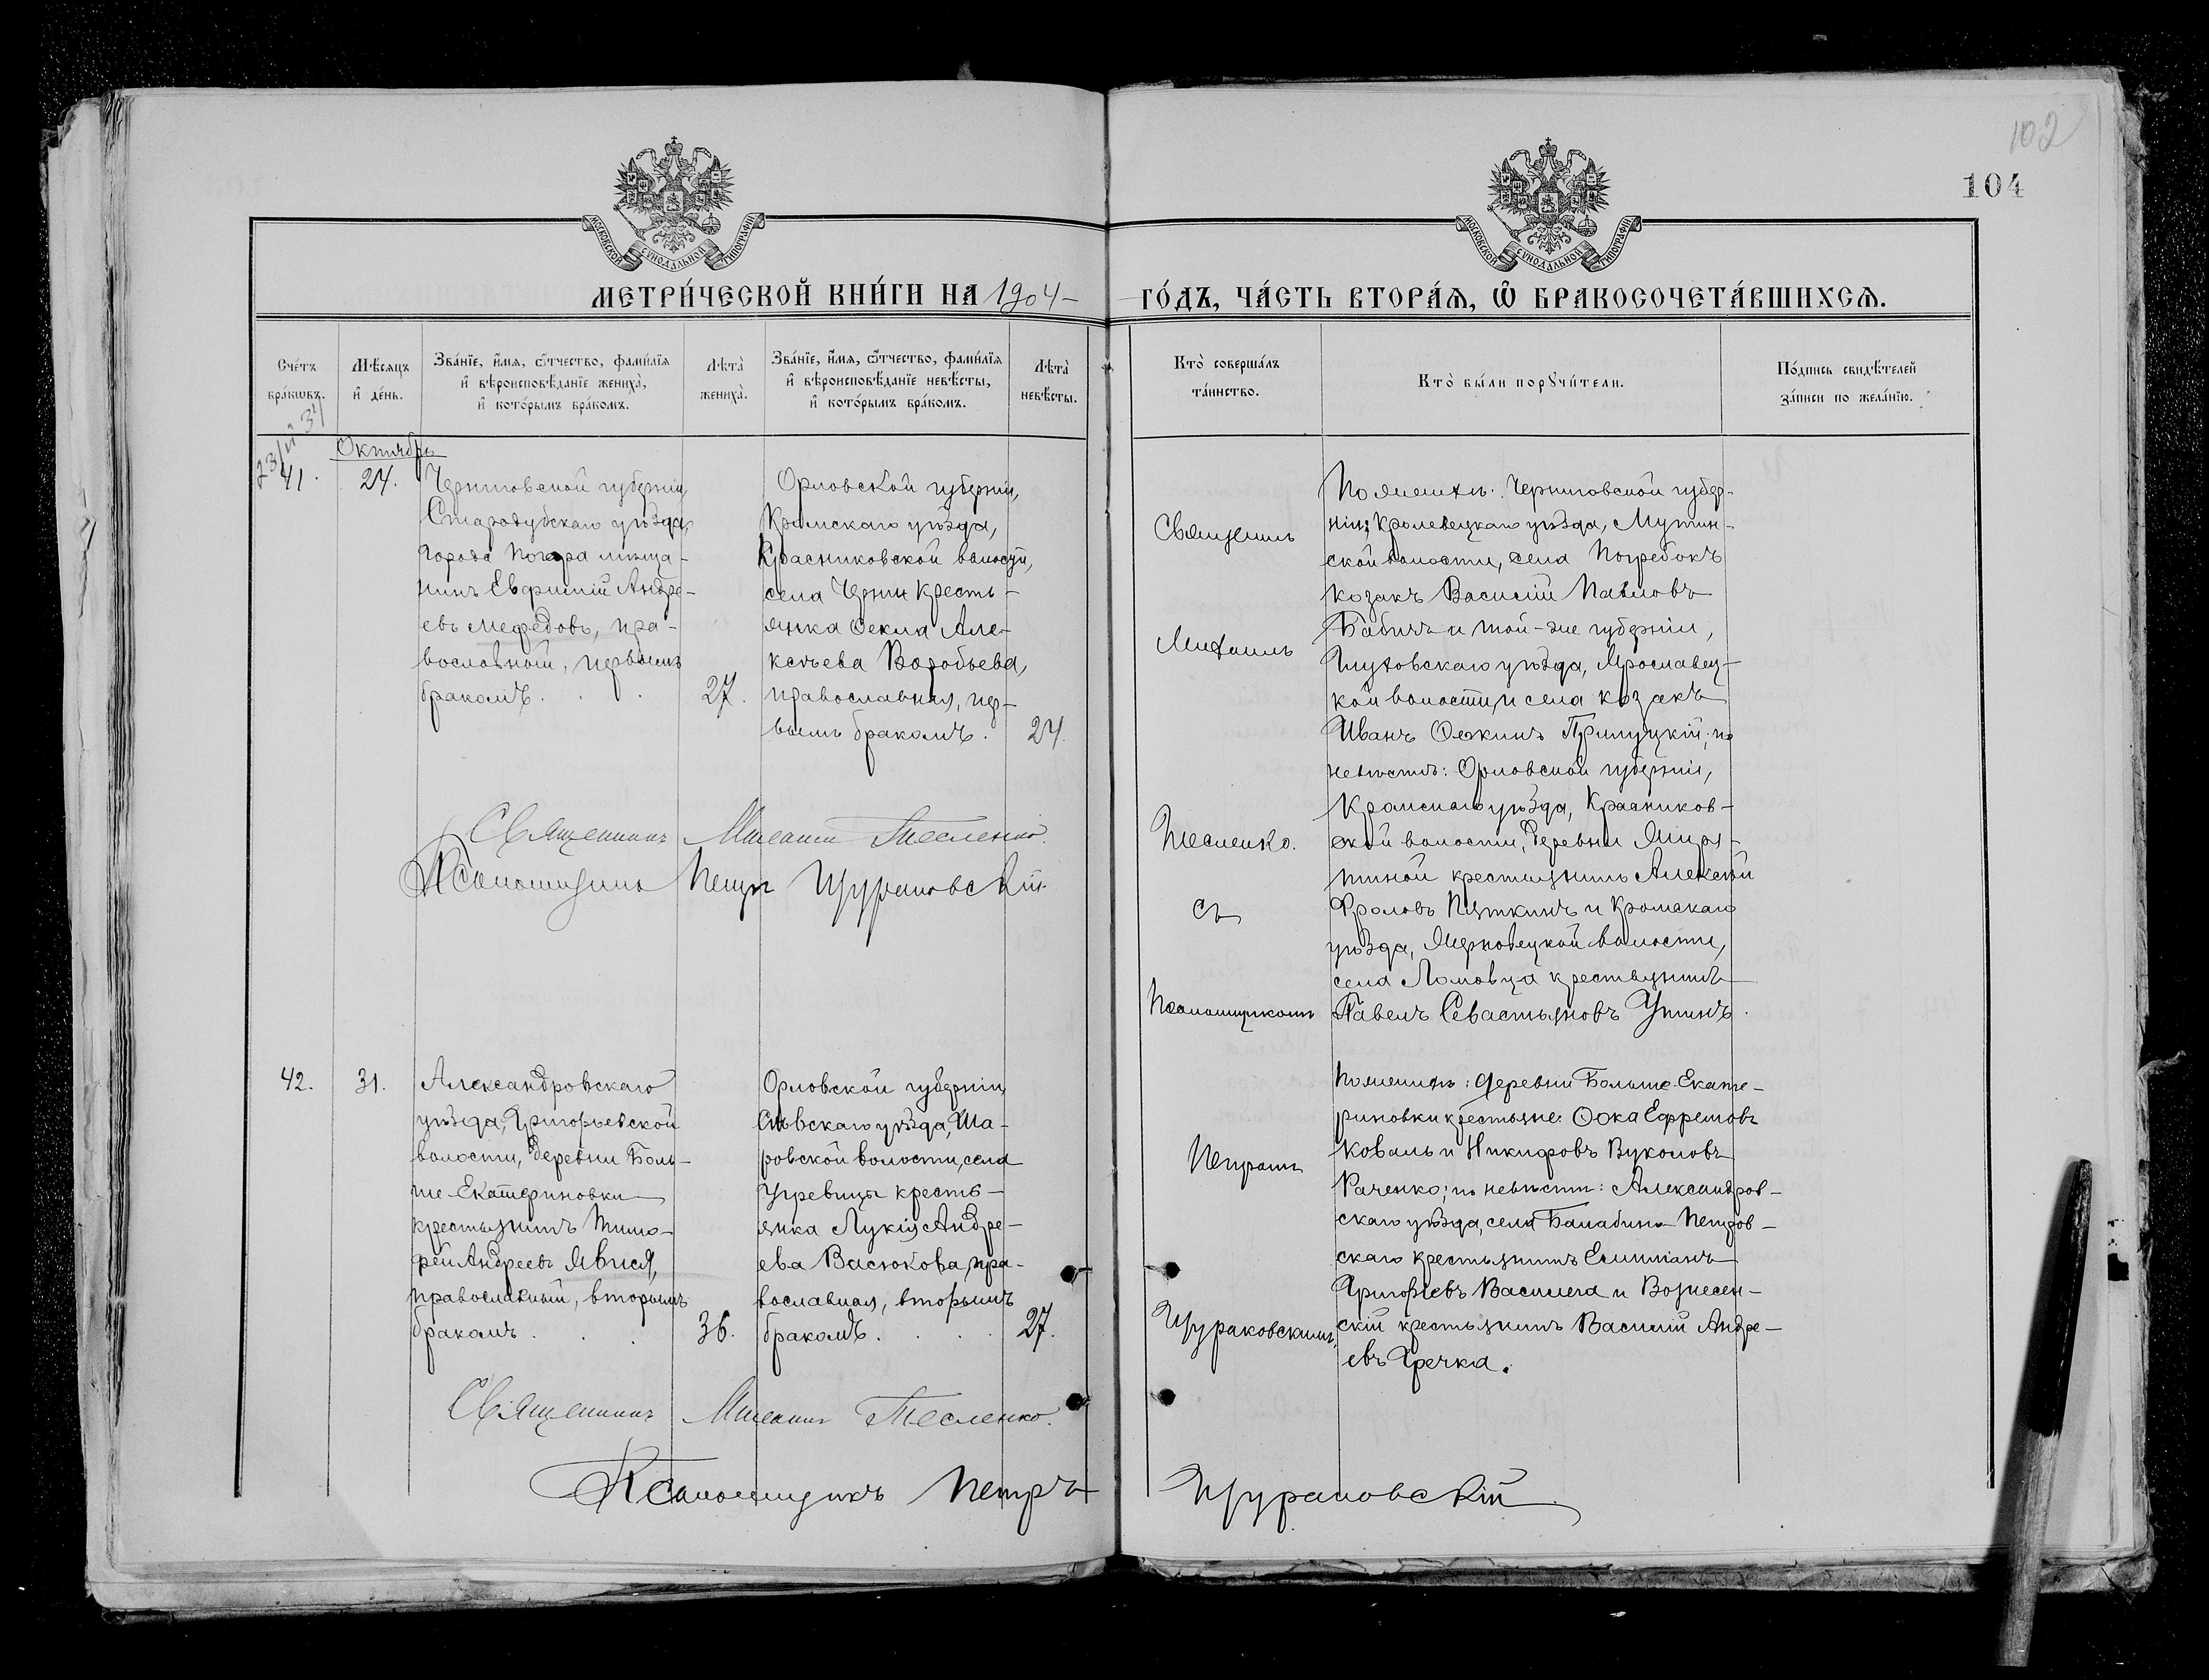 102
104
МОСКОВСКОЙ СѴНОДАЛЬНОЙ ТИПОГРАФІИ
МОСКОВСКОЙ СѴНОДАЛЬНОЙ ТИПОГРАФІИ
МЕТРИ́ЧЕСКОЙ КНИ́ГИ НА 1904
ГО́ДЪ, ЧА́СТЬ ВТОРА́Ѧ, Ѽ БРАКОСОЧЕТА́ВШИХСѦ.
Сче́тъ
бра́кѡвъ.
Мѣ́сѧцъ
и҆ де́нь.
Зва́нїе, и҆́мѧ, ѻ҆́тчество, фами́лїѧ
и҆ вѣроисповѣ́данїе жениха̀,
и҆ кото́рымъ бра́комъ.
Лѣта̀
жениха̀.
Зва́нїе, и҆́мѧ, ѻ҆́тчество, фами́лїѧ
и҆ вѣроисповѣ́данїе невѣ́сты,
и҆ кото́рымъ бра́комъ.
Лѣта̀
невѣ́сты.
Кто̀ соверша́лъ
та́инство.
Кто̀ бы́ли порꙋчи́тели.
По́дпись свидѣ́телей
за́писи по жела́нїю.
Октябрь
41.
24.
Черниговской губерніи,
Стародубскаго уѣзда,
города Погара мѣща-
нинъ Евфимій Андре-
евъ Мефедовъ, пра-
вославный, первымъ
бракомъ . . .
27.
Орловской губерніи,
Кромскаго уѣзда,
Красниковской волости,
села Черни кресть-
янка Ѳекла Але-
ксѣева Воробьева,
православная, пер-
вымъ бракомъ.
24.
Священникъ Михаилъ Тесленко.
Псаломщикъ Петръ Щураковскій.
Священникъ
Михаилъ
Тесленко.
съ
Псаломщикомъ
По женихѣ: Черниговской губер-
ніи, Кролевецкаго уѣзда, Мутин-
ской волости, села Погребокъ
козакъ Василій Павловъ
Бабичъ и той-же губерніи,
Глуховскаго уѣзда, Ярославец-
кой волости и села козакъ
Иванъ Ѳокинъ Прилуцкій; по
невѣстѣ: Орловской губерніи,
Кромскаго уѣзда, Красников-
ской волости, деревни
крестьянинъ Алексѣй
Фроловъ Пяткинъ и Кромскаго
уѣзда, волости,
села Ломовца крестьянинъ
Павелъ Севастьяновъ Упинъ.
42.
31.
Александровскаго
уѣзда, Григорьевской
волости, деревни Боль-
ше-Екатериновки
крестьянинъ Тимо-
фей Андреевъ Явися,
православный, вторымъ
бракомъ . . .
36.
Орловской губерніи,
Сѣвскаго уѣзда, Ша-
ровской волости, села
Угревищъ кресть-
янка Лукія Андре-
ева Васюкова, пра-
вославная, вторымъ
бракомъ . . .
27.
Петромъ
Щураковскимъ.
По женихѣ: деревни Больше-Екате-
риновки крестьяне: Ѳока Ефремовъ
Коваль и Никифоръ Вуколовъ
Раченко; по невѣстѣ: Александров-
скаго уѣзда, села Балабино-Петров-
скаго крестьянинъ Емиліанъ
Григорьевъ Василега и Вознесен-
скій крестьянинъ Василій Андре-
евъ Гречка.
Священникъ Михаилъ Тесленко.
Псаломщикъ Петръ Щураковскій.